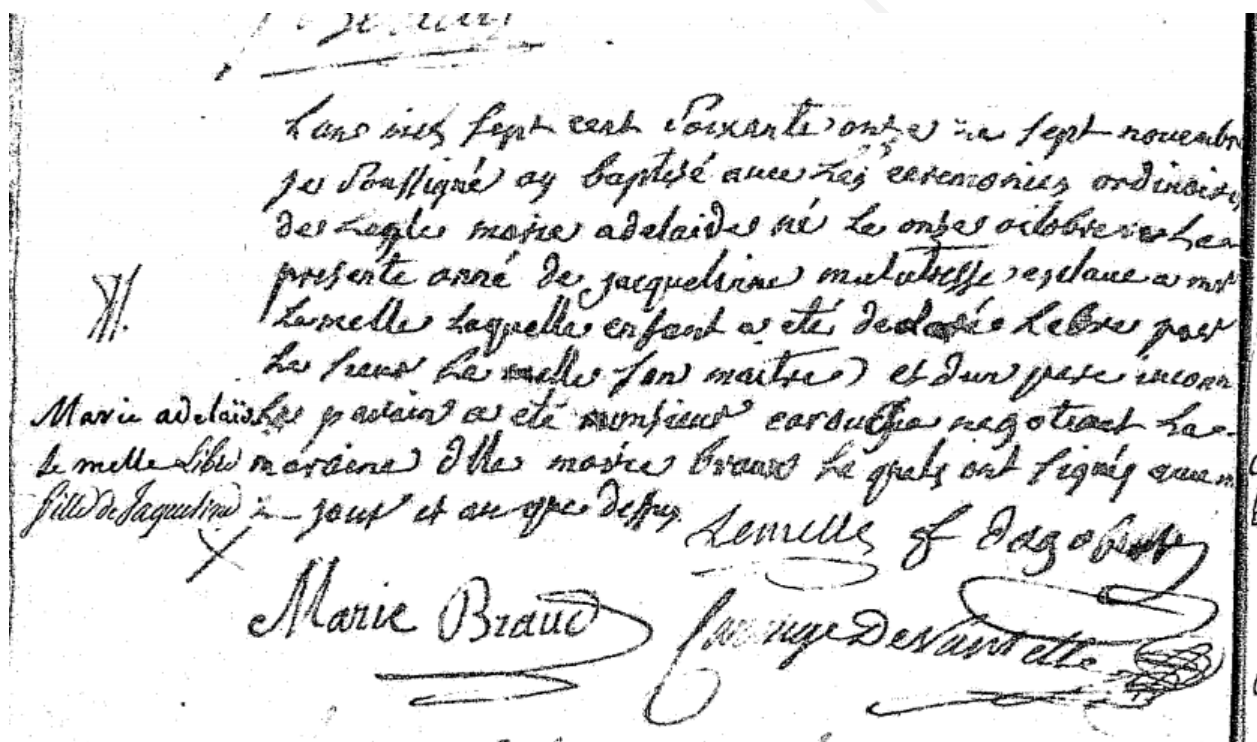 Lans mil sept cent Soixante onze le sept novembre
je Soussigné ay baptisé avec Les ceremonies ordinaires
de Leglise marie adelaide né Le onze octobre de La
presente anné de jacqueline mulatresse esclave a mr
Lemelle Laquelle enfant a eté declaré Libre par
Le sieur Le melle son maitre et d'un pere inconn
Le parain a eté monsieur negotiant La
maraine dlle marie braux Le quels ont signés avec m
jour et an que dessus.
Marie adelaïde
le melle Libre
fille de Jaqueline
Lemelle f dagobert
Marie Braud